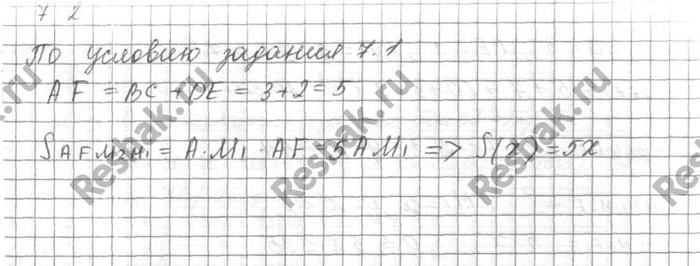 7 2
По условию задания 7.1
AF = BC + DE = 3+2=5
S AFM2M1 = A·M1 · AF = 5AM1 => S(x)=5x
Reshak.ru
Reshak.ru
Reshak.ru
Reshak.ru